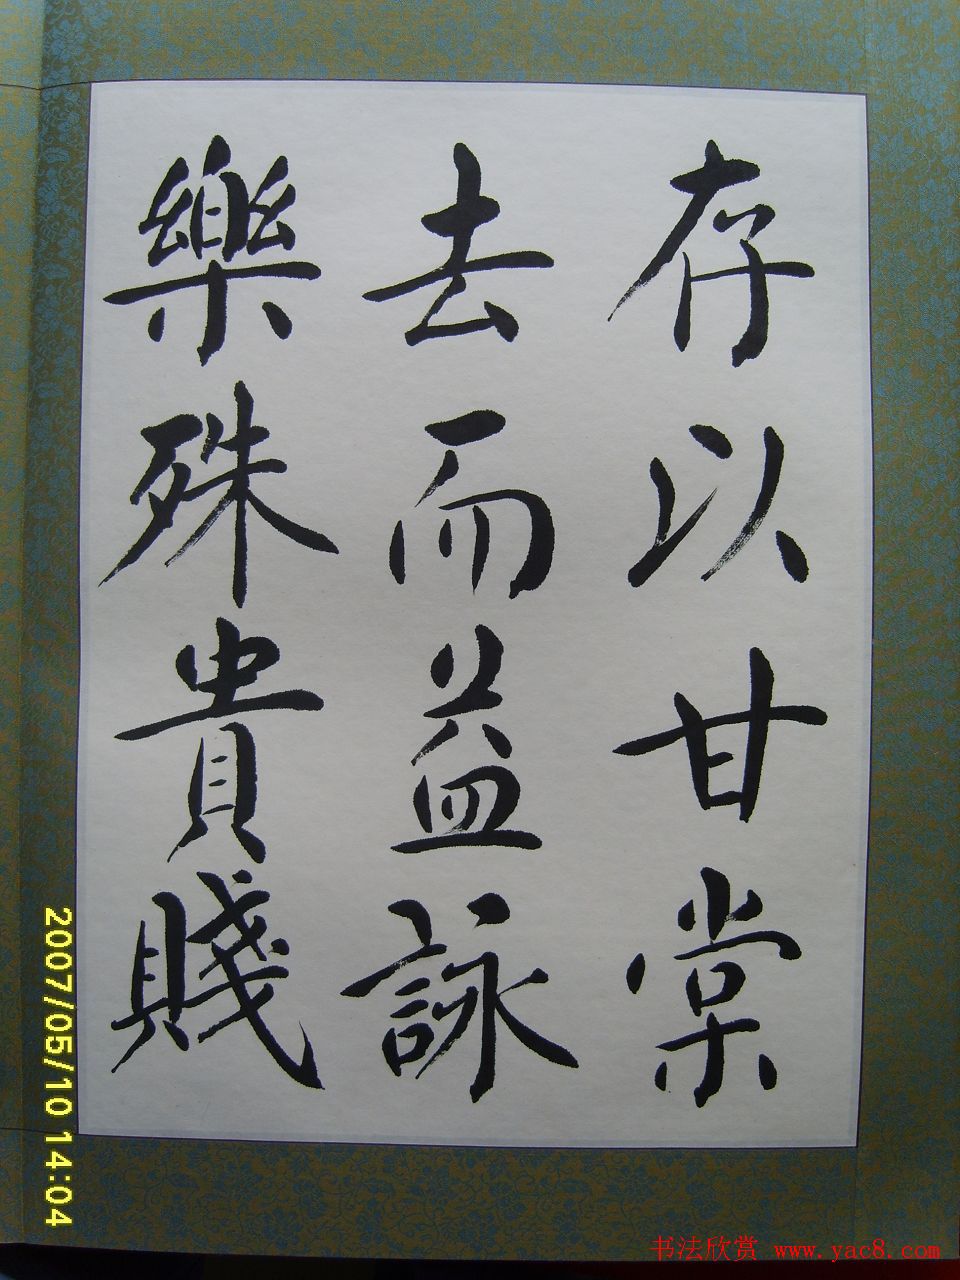 存以甘棠
去而益詠
樂殊貴賤
2007/05/10 14:04
书法欣赏 www.yac8.com